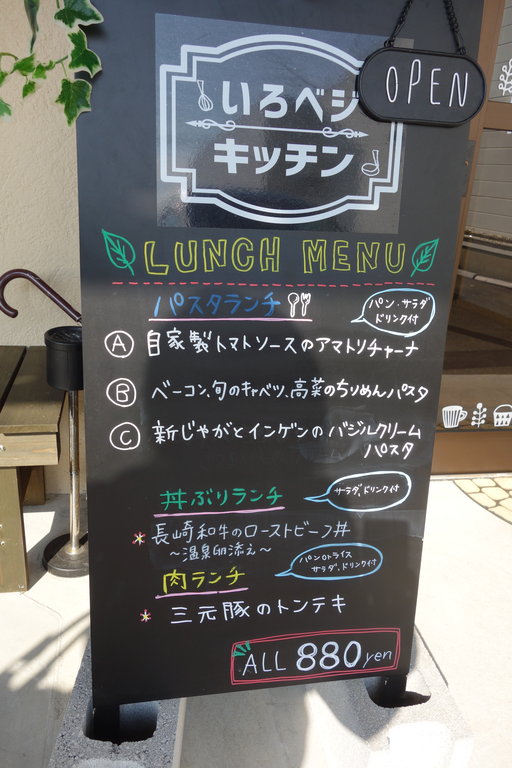 OPEN
いろベジ
キッチン
LUNCH MENU
パスタランチ
パン・サラダ
ドリンク付
Ⓐ 自家製トマトソースのアマトリチャーナ
Ⓑ ベーコン、旬のキャベツ、高菜のちりめんパスタ
Ⓒ 新じゃがとインゲンのバジルクリーム
パスタ
丼ぶりランチ
サラダ、ドリンク付
* 長崎和牛のローストビーフ丼
〜温泉卵添え〜
肉ランチ
パンorライス
サラダ、ドリンク付
* 三元豚のトンテキ
ALL 880yen